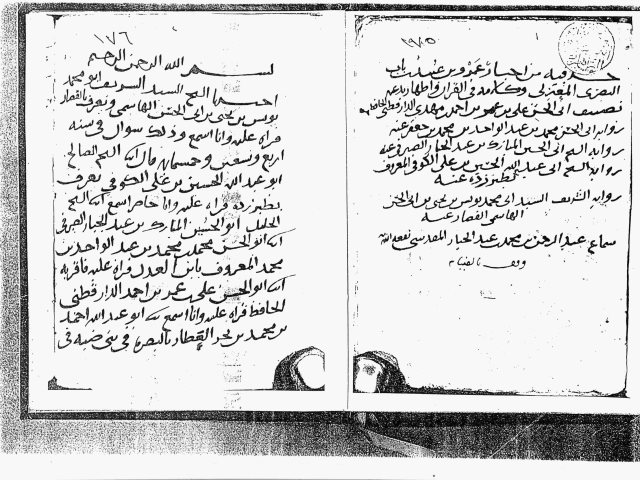 ١٩٧٥
جزء فيه من اخبار عمرو بن عبيد بن باب
البصري المعتزلي وكلامه في القران واظهار بدعته
تصنيف ابي الحسن علي بن عمر بن احمد بن مهدي الدارقطني الحافظ
رواية ابي الحسن محمد بن عبد الواحد بن محمد بن جعفر عنه
رواية الشيخ ابي الحسين المبارك بن عبد الجبار الصيرفي عنه
رواية الشيخ ابي عبد الله الحسين بن علي الكوفي المعروف
بطبرزده عنه
رواية الشريف السيد ابي محمد يونس بن يحيى بن ابي الحسن
الهاشمي القصار عنه
سماع عبد الرحمن بن محمد بن عبد الجبار المقدسي نفعه الله
وقف بالضيائية
١٧٦
بسم الله الرحمن الرحيم
اخبرنا الشيخ السيد الشريف ابو محمد
يونس بن يحيى بن ابي الحسن الهاشمي ويعرف بالقصار
قراة عليه وانا اسمع وذلك سوال في سنة
اربع وتسعين وخمسمائة قال ابنا الشيخ الصالح
ابو عبد الله الحسين بن علي الكوفي يعرف
بطبرزده قراة عليه وانا حاضر اسمع ابنا الشيخ
الجليل ابو الحسين المبارك بن عبد الجبار الصيرفي
ابنا ابو الحسن محمد بن محمد بن عبد الواحد بن
محمد المعروف بابن العدل قراة عليه فاقر به
ابنا ابو الحسن علي بن عمر بن احمد الدارقطني
الحافظ قراة عليه وانا اسمع ابو عبد الله احمد
بن محمد بن بحر القطار بالبصرة في بني ضبة في